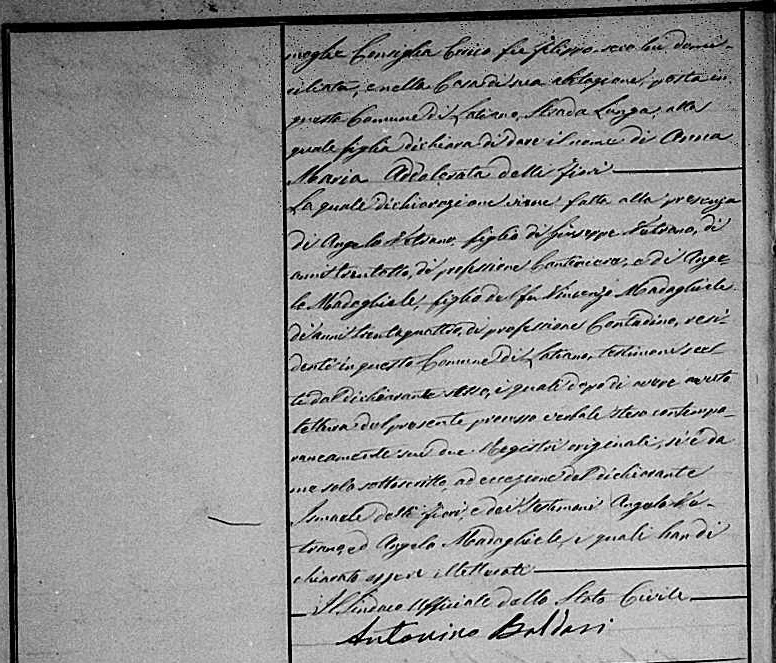 moglie Consiglia Errico fu Filippo, seco lui domi-
ciliata, e nella Casa di sua abitazione, posta in
questo Comune di Latiano, Strada Lunga, alla
quale figlia dichiara di dare il nome di Anna
Maria Addolorata delli Fiori
La quale dichiarazione viene fatta alla presenza
di Angelo Vetrano, figlio di Giuseppe Vetrano, di
anni trentotto, di professione e di Ange-
lo Madaghiele, figlio del fu Vincenzo Madaghiele
di anni trentaquattro, di professione Contadino, resi-
denti in questo Comune di Latiano, testimoni scel-
ti dal dichiarante stesso, i quali dopo di avere avuto
lettura del presente processo verbale steso contempo-
raneamente sui due Registri originali, si è da
me solo sottoscritto, ad eccezione del dichiarante
Ismaele delli Fiori, e dai testimoni Angelo Ve-
trano, ed Angelo Madaghiele, i quali han di
chiarato essere illetterati
Il Sindaco Uffiziale dello Stato Civile
Antonino Baldari